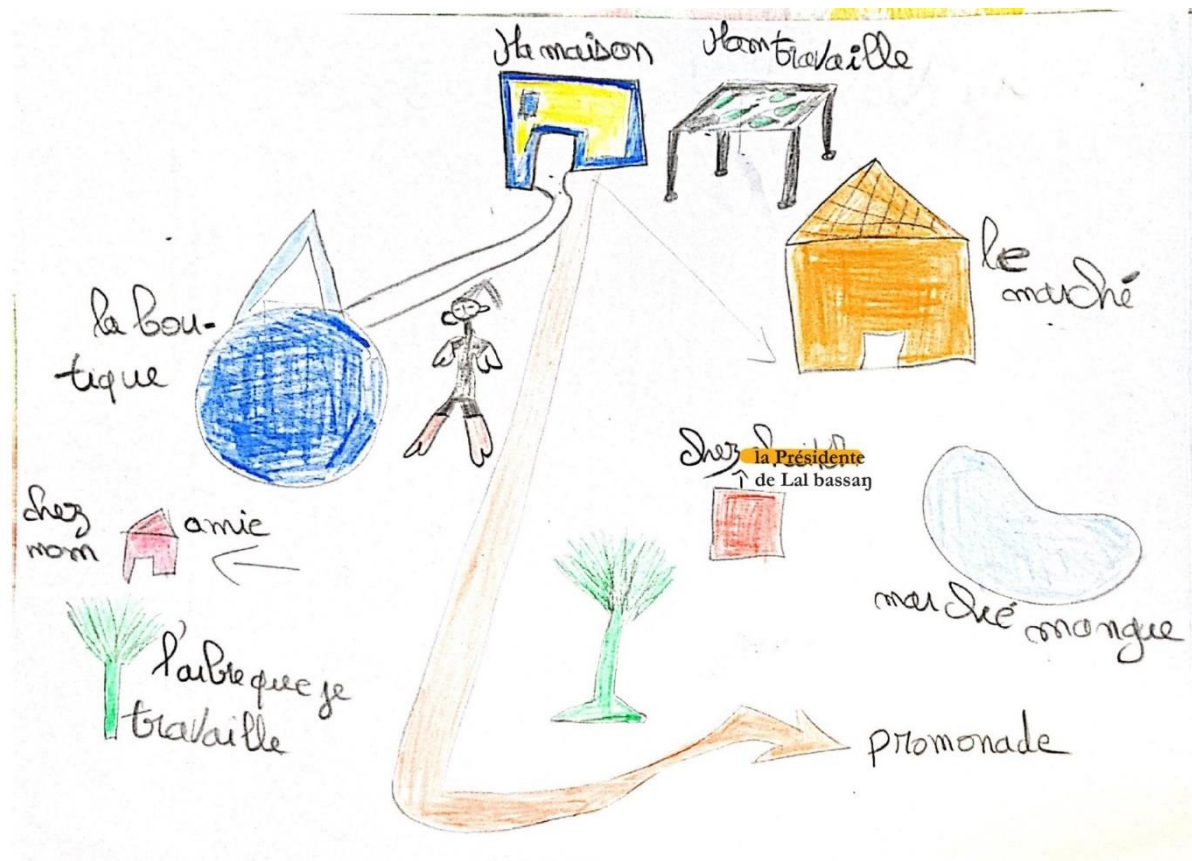 Ma maison
Mom travaille
le
marché
la bou-
tique
Chez la Présidente
de Lal bassaŋ
chez
mom
amie
marché mangue
l'arbre que je
travaille
promonade